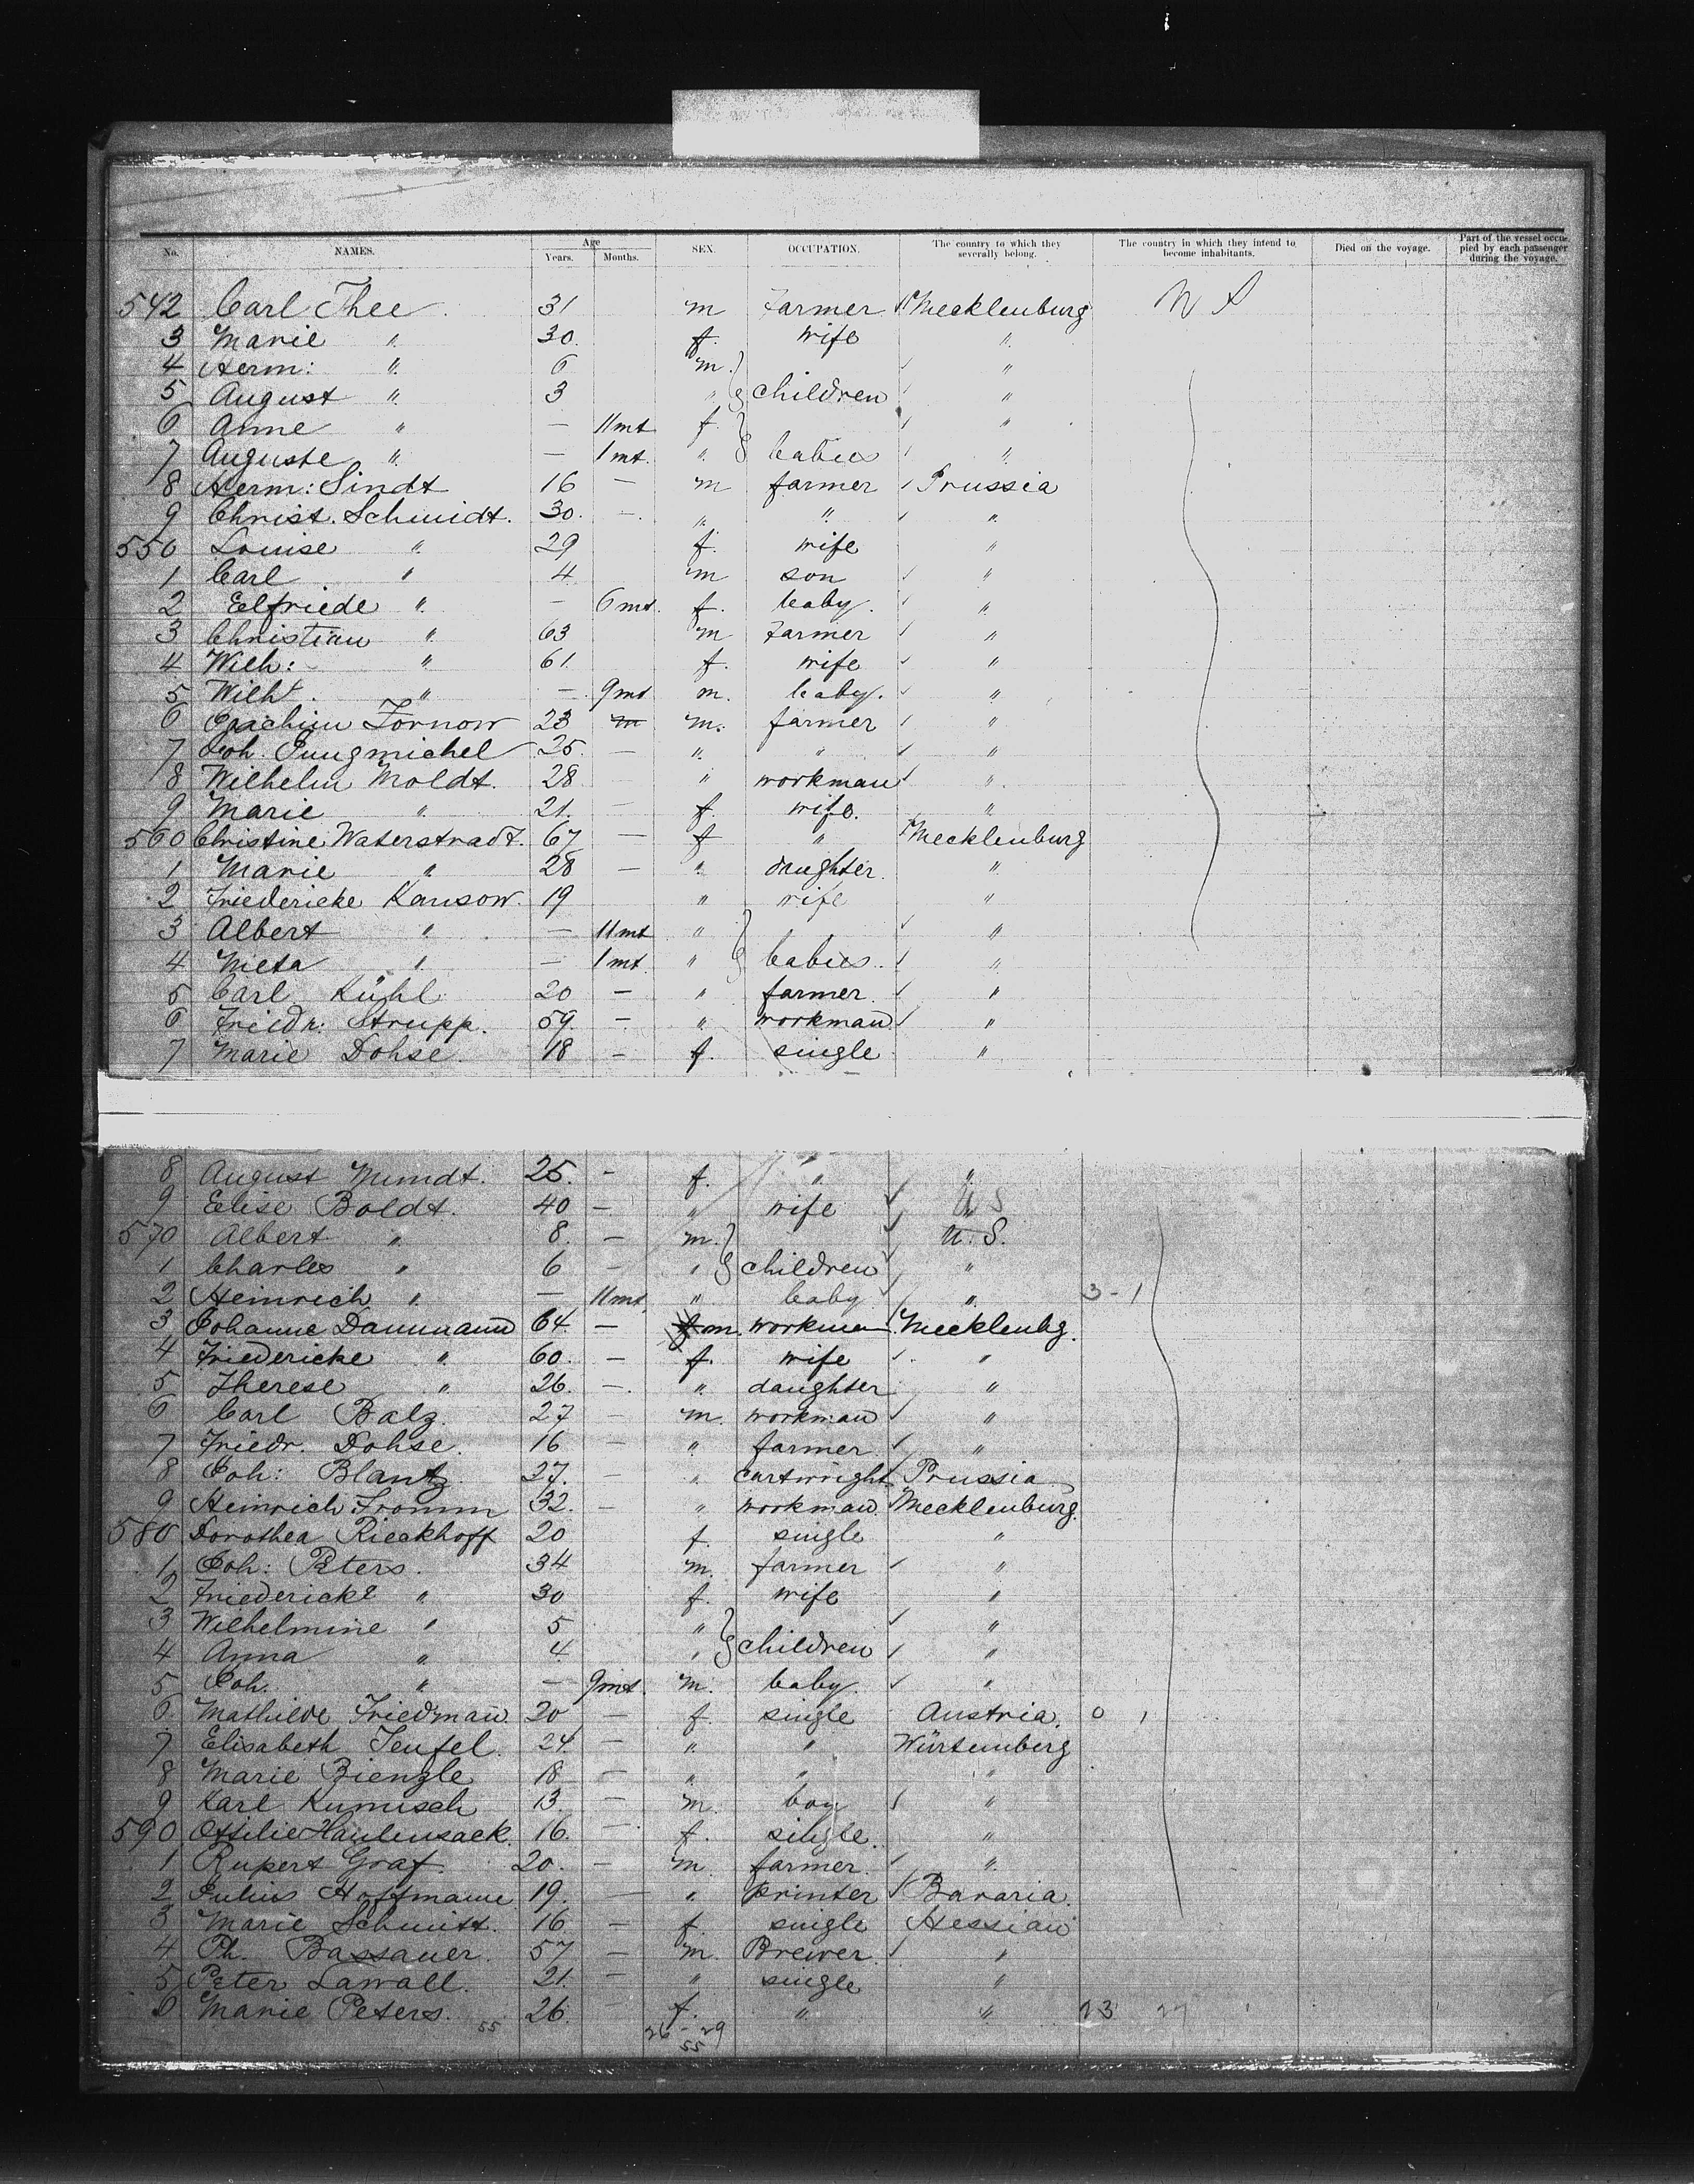 No. NAMES. Age Years. Months. SEX. OCCUPATION. The country to which they severally belong. The country in which they intend to become inhabitants. Died on the voyage. Part of the vessel occupied by each passenger during the voyage.
542 Carl Thee 31 m Farmer Mecklenburg
3 Marie " 30. f. wife "
4 Herm: " 6 m. "
5 August " 3 " children "
6 Anne " — 11 mt f. "
7 Auguste " — 1 mt. " babies "
8 Herm: Sindt 16 — m farmer Prussia
9 Christ. Schmidt. 30. — " " "
550 Louise " 29 f. wife "
1 Carl " 4 m son "
2 Elfriede " — 6 mt. f. baby. "
3 Christian " 63 m Farmer "
4 Wilh: " 61. f. wife "
5 Wilh. " — 9 mt m. baby. "
6 Joachim Zornow 23 m m. farmer "
7 Joh. Jungmichel 25. — " " "
8 Wilhelm Moldt. 28 — " workman "
9 Marie " 21. — f. wife. "
560 Christine Waterstradt. 67 — f " Mecklenburg
1 Marie " 28 — " daughter. "
2 Friedericke Kansow. 19 " wife "
3 Albert " — 11 mt " "
4 Meta " — 1 mt. " babies. "
5 Carl Kühl 20 — " farmer. "
6 Friedr: Strupp. 59. — " workman "
7 Marie Dohse. 18 — f. single "
8 August Mundt. 25. — f. " "
9 Elise Boldt. 40 — " wife U S "
570 Albert " 8. — m. U. S.
1 Charles " 6 — " children "
2 Heinrich " — 11 mt. " baby " 3 - 1
3 Johanne Dammann 64. — f m. workman Mecklenbg.
4 Friedericke " 60. — f. wife "
5 Therese " 26. — " daughter "
6 Carl Balz. 27 — m. workman "
7 Friedr. Dohse. 16 — " farmer. "
8 Joh: Blantz 27. — " cartwright Prussia
9 Heinrich Fromm 32. — " workman. Mecklenburg.
580 Dorothea Rieckhoff 20 f. single "
1 Joh: Peters. 34 m. farmer "
2 Friedericke " 30 f. wife "
3 Wilhelmine " 5 " "
4 Anna " 4 " children "
5 Joh. " — 9 mt. m. baby. "
6 Mathilde Friedman 20 — f. single Austria. 0 1
7 Elisabeth Teufel. 24. — " " Würtemberg
8 Marie Bienzle 18 — " " "
9 Karl Kumisch 13. — m. boy "
590 Ottilie Haulensack. 16. — f. single. "
1 Rupert Graf. 20. — m farmer. "
2 Julius Hoffmann 19. — " printer Bavaria.
3 Marie Schmitt. 16 — f single Hessian
4 Ph. Bassauer. 57 — m. Brewer. "
5 Peter Lawall. 21. — " single "
6 Marie Peters. 26. — f. " " 23
55 26 - 29
55